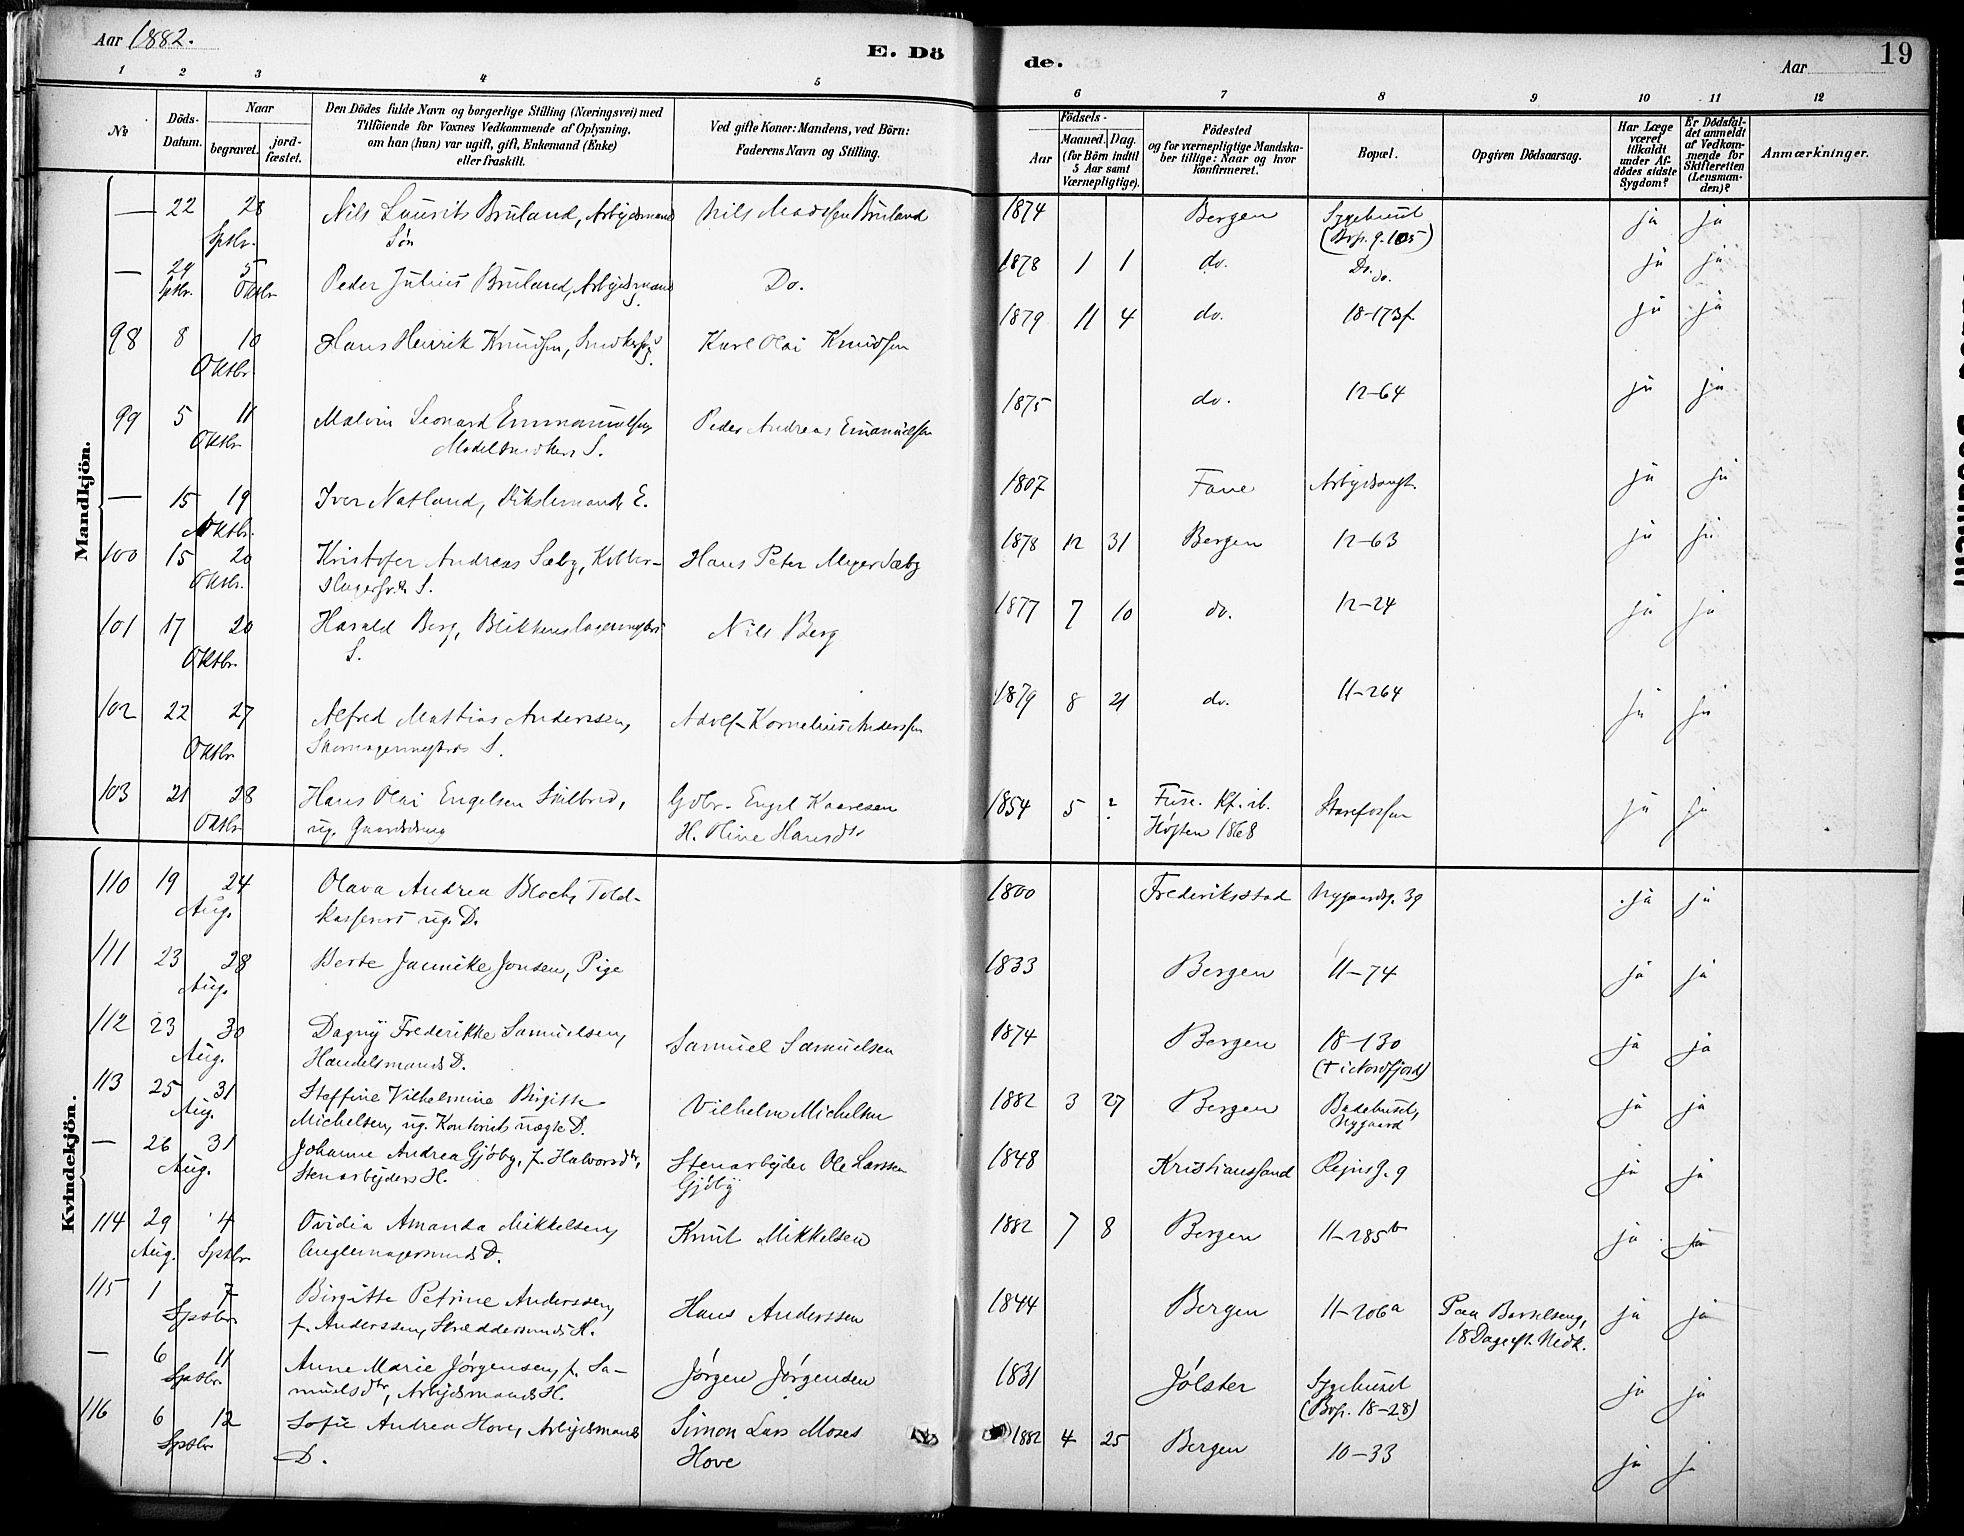 Aar 1882.
E. Döde.
Aar
19
1 2 3 4 5 6 7 8 9 10 11 12
No
Döds-Datum.
Naar
begravet.
jord-fæstet.
Den Dödes fulde Navn og borgerlige Stilling (Næringsvei) med
Tilföiende for Voxnes Vedkommende af Oplysning,
om han (hun) var ugift, gift, Enkemand (Enke)
eller fraskilt.
Ved gifte Koner: Mandens, ved Börn:
Faderens Navn og Stilling.
Födsels-
Aar
Maaned. Dag.
(for Börn indtil
5 Aar samt
Værnepligtige).
Födested
og for værnepligtige Mandska-
ber tillige: Naar og hvor
konfirmeret.
Bopæl.
Opgiven Dödsaarsag.
Har Læge
været
tilkaldt
under Af-
dödes sidste
Sygdom?
Er Dödsfal-
det anmeldt
af Vedkom-
mende for
Skifteretten
(Lensman-
den)?
Anmærkninger.
Mandkjön.
— 22 28 Nils Laurits Bruland, Arbejdsmands Nils Madssen Bruland 1874 Bergen Sygehuset ja ja
Sptbr. Søn (Bop. 9.105)
— 29 5 Peder Julius Bruland, Arbejdsmands Do. 1878 1 1 do. Do. ja ja
Sptbr. Oktbr. S. do.
98 8 10 Hans Henrik Knudsen, Karl Olai Knudsen 1879 11 4 do. 18-173f. ja ja
Oktbr.
99 5 11 Malvin Leonard Emmanuelsen, Peder Andreas Emanuelsen 1875 do. 12-64 ja ja
Oktbr. Modelsnedkers S.
— 15 19 Iver Natland, E. 1807 Fane Arbejdsanst. ja ja
Oktbr.
100 15 20 Kristofer Andreas Sæby, Kobber- Hans Peter Meyer Sæby 1878 12 31 Bergen 12-63 ja ja
Oktbr. slagersv.s S.
101 17 20 Harald Berg, Blikkenslagermesters Nils Berg 1877 7 10 do. 12-24 ja ja
Oktbr. S.
102 22 27 Alfred Mathias Anderssen, Adolf Kornelius Anderssen 1879 8 21 do. 11-264 ja ja
Oktbr. Skomagermesters S.
103 21 28 Hans Olai Engelsen Gdbr. Engel Kaaresen 1854 5 ? Fuse. Kf. ib. Starefossen ja ja
Oktbr. ug. Gaardsdreng H. Oline Hansdtr Høsten 1868
Kvindekjön.
110 19 24 Olava Andrea Bloch, Told- 1800 Frederiksstad Nygaardsg. 39 ja ja
Aug. kasserers ug. D.
111 23 28 Berte Jannike Jonsen, Pige 1833 Bergen 11-74 ja ja
Aug.
112 23 30 Dagny Frederikke Samuelsen, Samuel Samuelsen 1874 Bergen 18-130 ja ja
Aug. Handelsmands D. († i Nordfjord)
113 25 31 Steffine Vilhelmine Birgitte Vilhelm Michelsen 1882 3 27 Bergen Badehuset, ja ja
Aug. Michelsen, ug. Kontorists uægte D. Nygaard
— 26 31 Johanne Andrea Gjøby, f. Halvorsdtr, Stenarbejder Ole Larssen 1848 Kristianssand 9 ja ja
Aug. Stenarbejders H. Gjøby
114 29 4 Ovidia Amanda Mikkelsen, Knut Mikkelsen 1882 7 8 Bergen 11-285b ja ja
Aug. Sptbr. D.
115 1 7 Birgitte Petrine Anderssen, Hans Anderssen 1844 Bergen 11-206a Paa Barselseng, ja ja
Sptbr. f. Anderssen, Skræddersvends H. 18 Dage eft. Nedk.
— 6 11 Anne Marie Jørgensen, f. Sa- Jørgen Jørgensen 1831 Jølster Sygehuset ja ja
Sptbr. muelsdtr, Arbejdsmands H. (Bop. 18-28)
116 6 12 Sofie Andrea Hove, Arbejdsmands Simon Lars Moses 1882 4 25 Bergen 10-33 ja ja
Sptbr. D. Hove